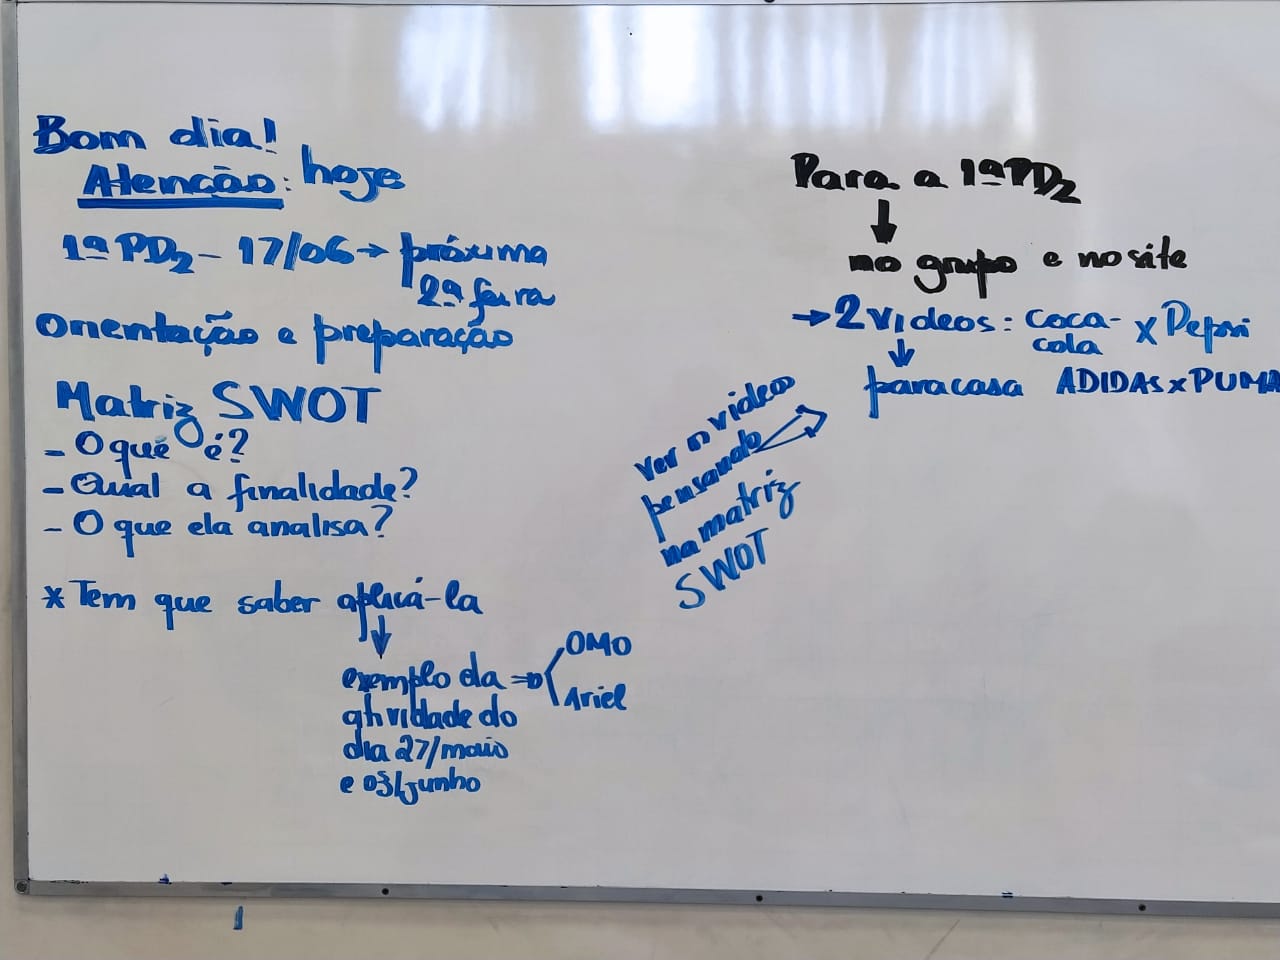 Bom dia!
Atenção: hoje
1ª PD2 - 17/06 → próxima
2ª feira
Orientação e preparação
Matriz SWOT
- O que é?
- Qual a finalidade?
- O que ela analisa?
* Tem que saber aplicá-la
↓
exemplo da ⇒ OMO
atividade do Ariel
dia 27/maio
e 03/junho
Para a 1ª PD2
↓
no grupo e no site
→ 2 vídeos: coca- x Pepsi
cola
↓
para casa ADIDAS x PUMA
Ver os vídeos
pensando
na matriz
SWOT